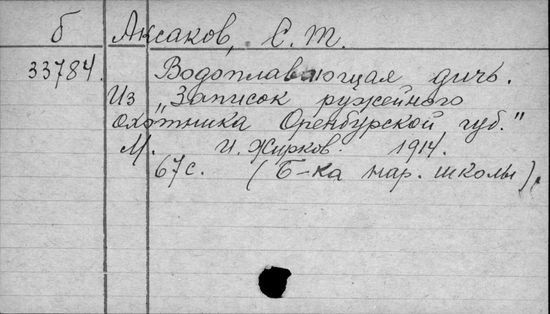 б Аксаков, С. Т.
33784. Водоплавающая дичь.
Из „Записок ружейного
охотника Оренбургской губ."
М. И. Жирков. 1914.
67 с. (Б-ка нар. школы).